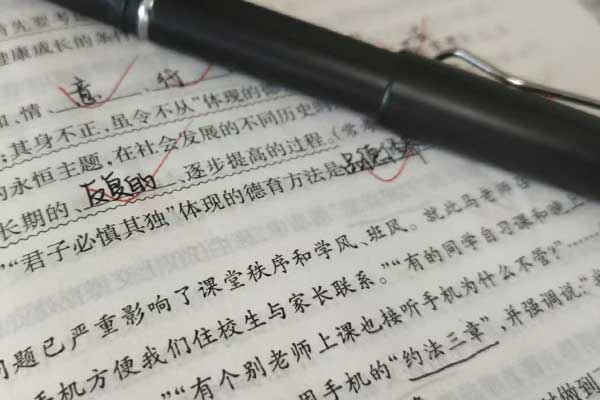 健康成长的条件
情、意、行
其身不正,虽令不从”体现的德
的永恒主题,在社会发展的不同历史的
长期的、反复的、逐步提高的过程。(常
“君子必慎其独”体现的德育方法是
问题已严重影响了课堂秩序和学风、班风。就此马老师
手机方便我们住校生与家长联系。”“有的同学自习课和晚
“有个别老师上课也接听手机为什么不管?”……
用手机的“约法三章”,并强调说: